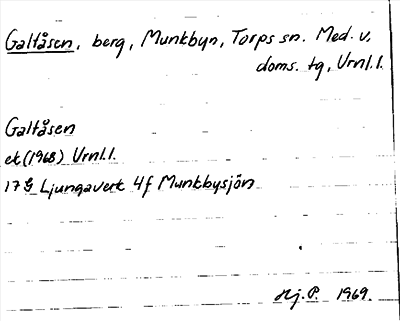 Galtåsen, berg, Munkbyn, Torps sn. Med. v.
doms. tg, Urnl.l.
Galtåsen
ek (1968) Urnl.l.
17 G Ljungaverk 4f Munkbysjön
Hj. P. 1969.